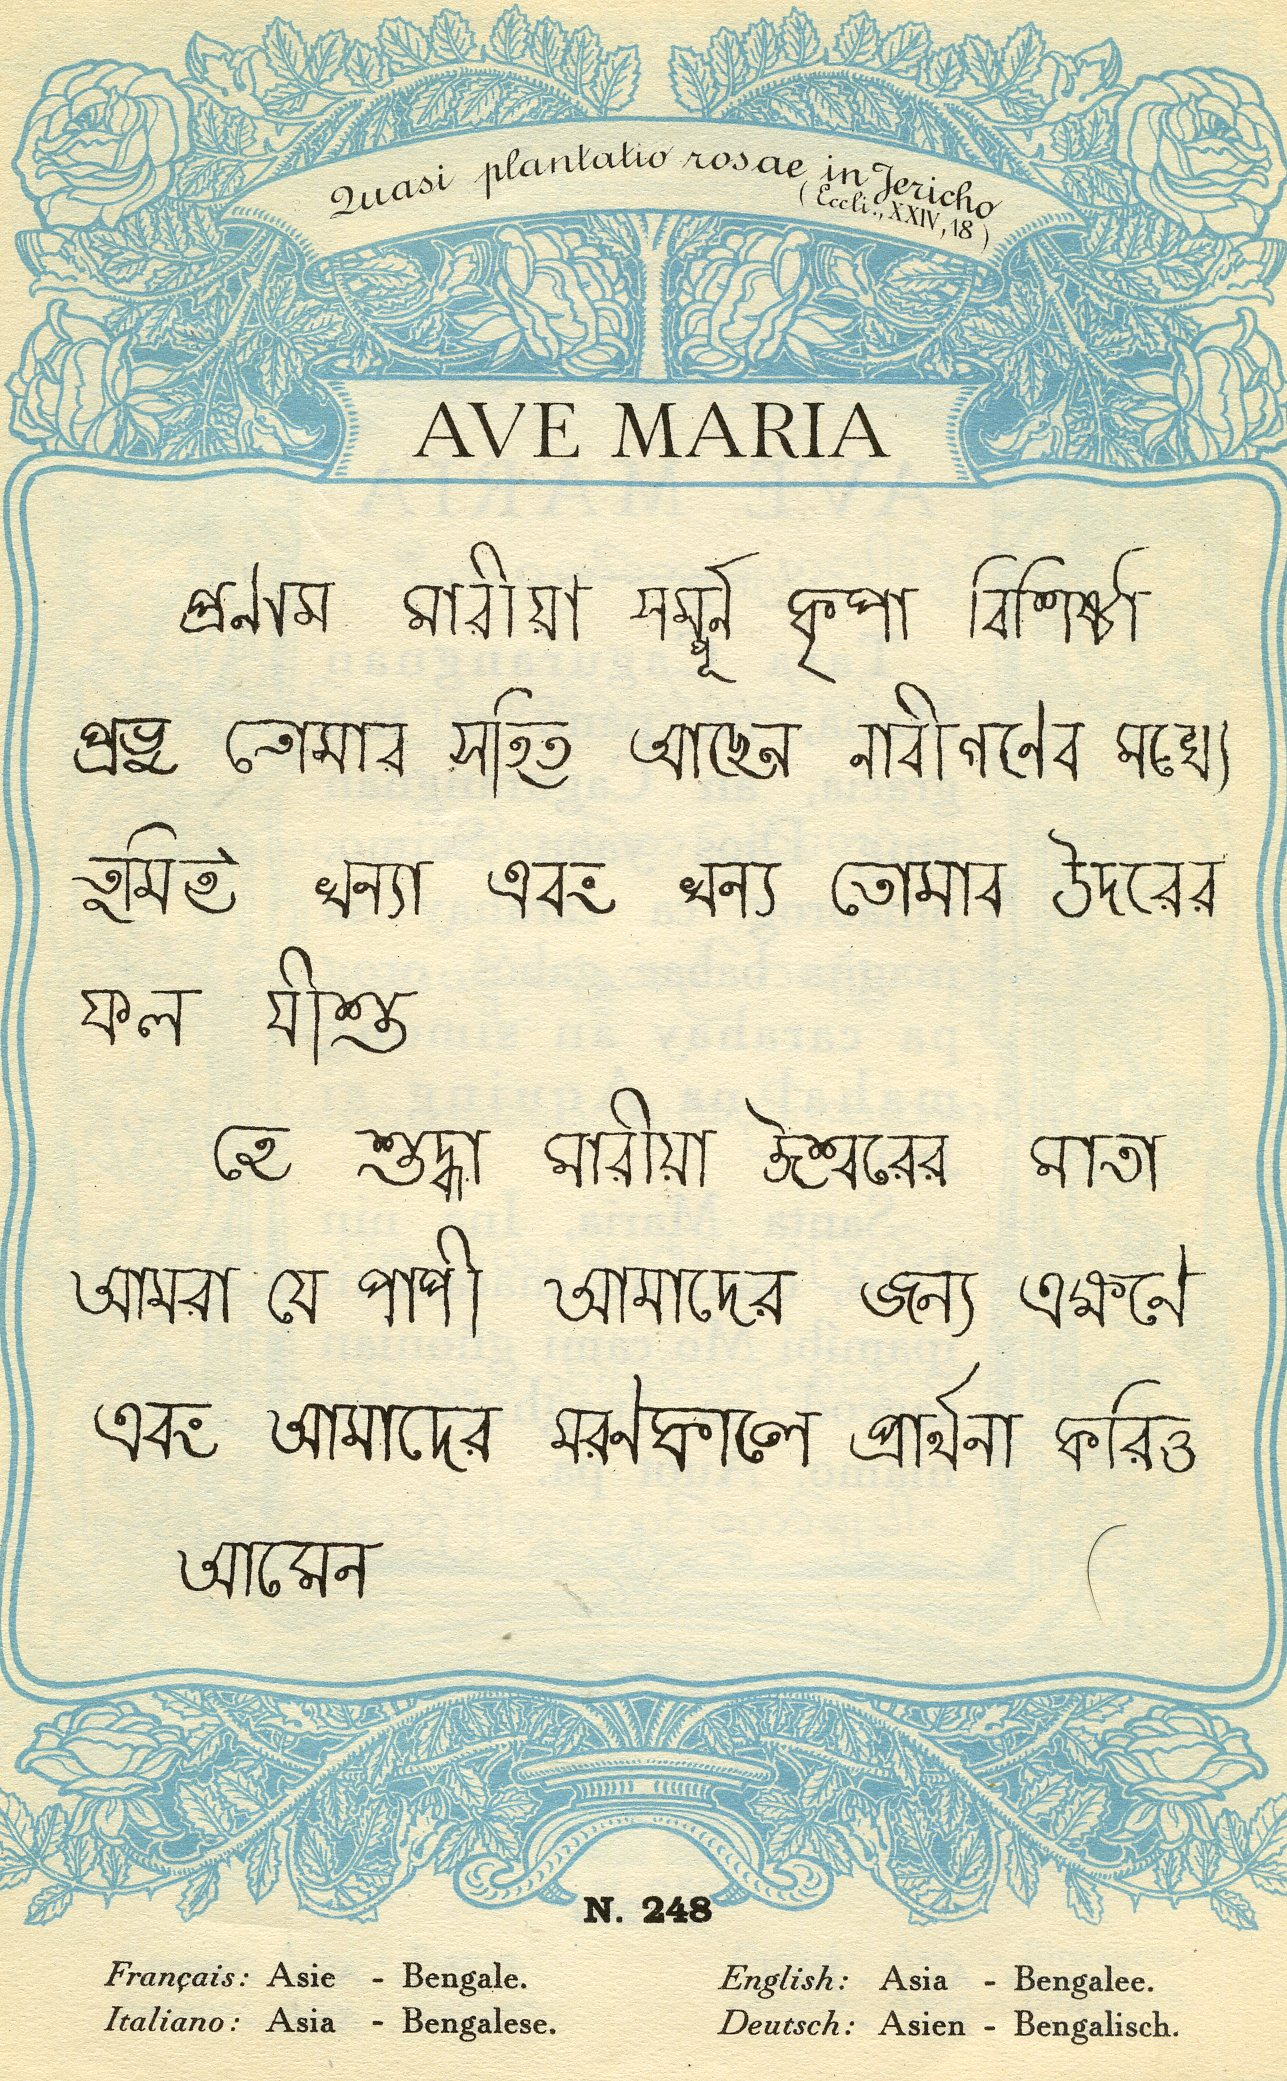 Quasi plantatio rosae in Jericho
(Eccli., XXIV, 18)
AVE MARIA
প্রণাম মারীয়া সম্পূর্ন কৃপা বিশিষ্ঠা
প্রভু তোমার সহিত আছেন নাবীগণেব মধ্যে
তুমিই ধন্যা এবং ধন্য তোমাব উদরের
ফল যীশু
হে শুদ্ধা মারীয়া ঈশ্বরের মাতা
আমরা যে পাপী আমাদের জন্য এক্ষণে
এবং আমাদের মরণকালে প্রার্থনা করিও
আমেন
N. 248
Français: Asie - Bengale. English: Asia - Bengalee.
Italiano: Asia - Bengalese. Deutsch: Asien - Bengalisch.